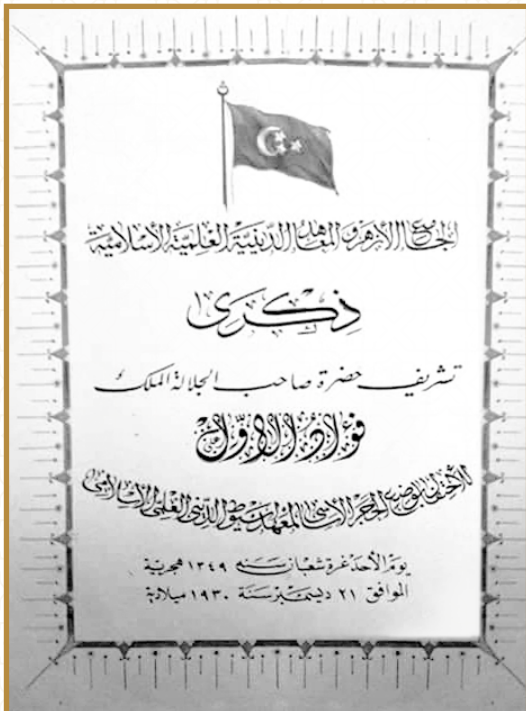 الجامع الأزهر والمعاهد الدينية العلمية الأسلامية
ذكرى
تشريف حضرة صاحب الجلالة الملك
فؤاد الاول
للأحتفال بوضع الحجر الاساسى لمعهد أسيوط الدينى العلمى الأسلامى
يوم الأحد غرة شعبان سنة ١٣٤٩ هجرية
الموافق ٢١ ديسمبر سنة ١٩٣٠ ميلادية